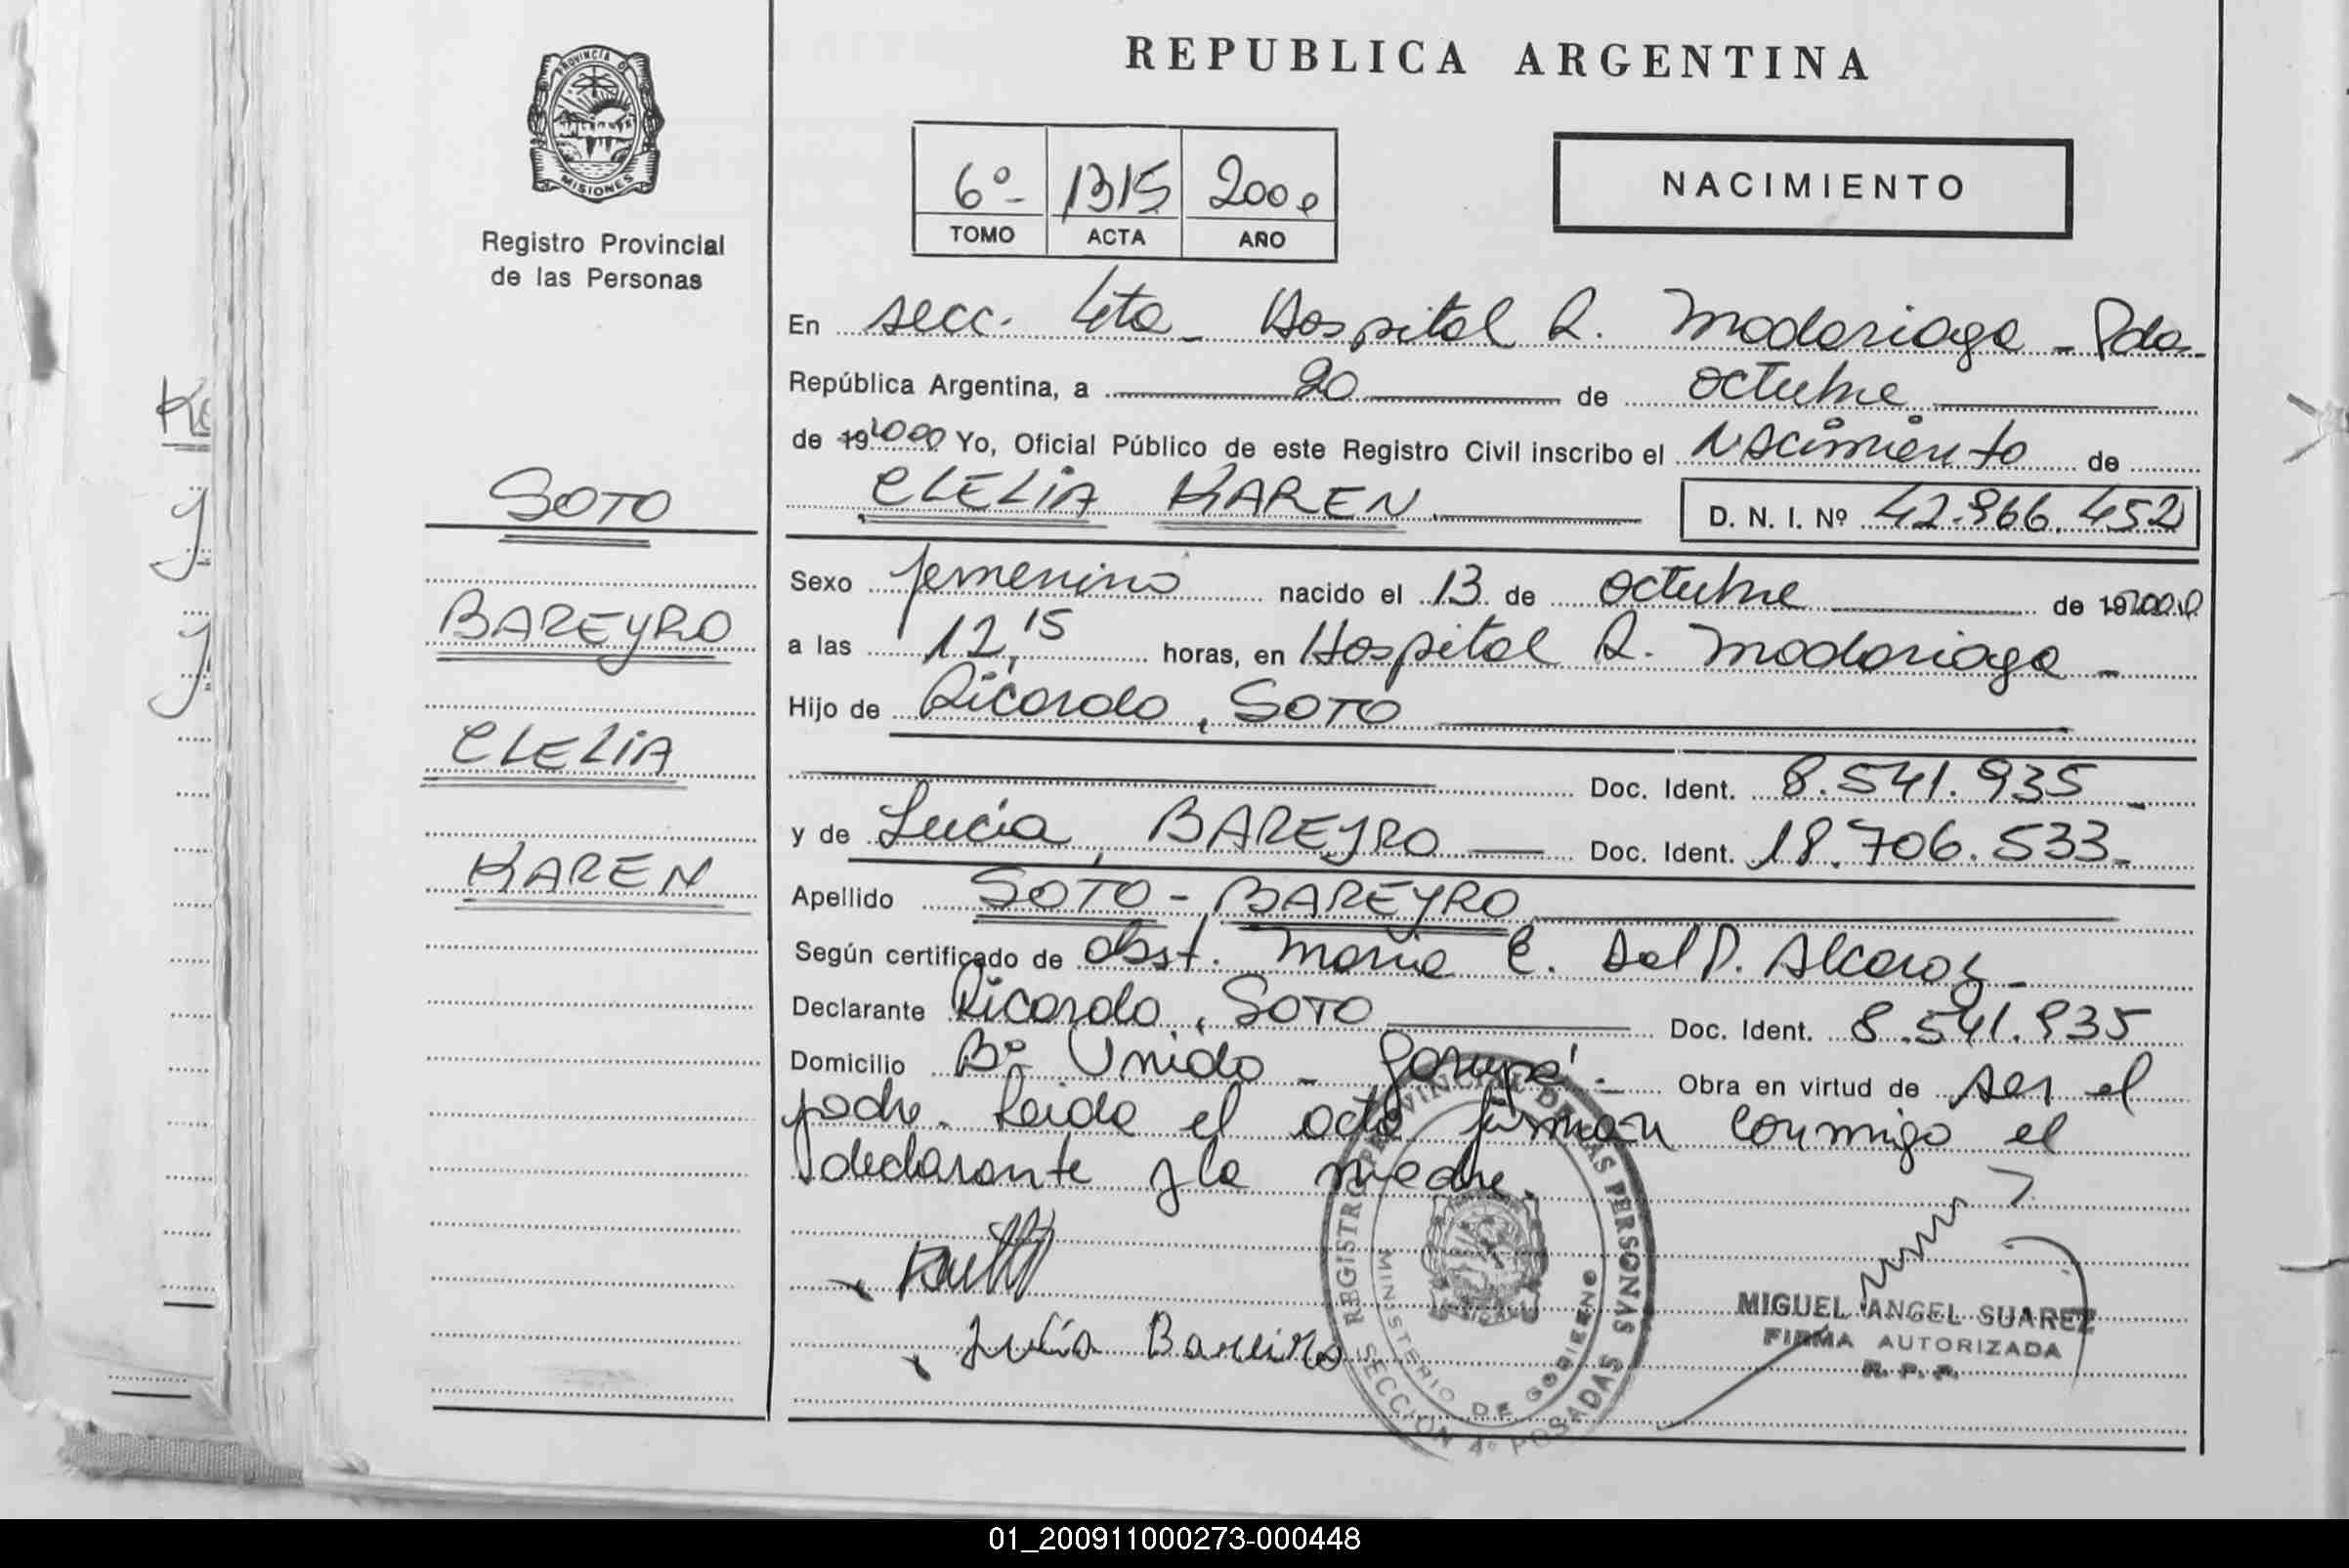 PROVINCIA DE
MISIONES
Registro Provincial
de las Personas
SOTO
BAREYRO
CLELIA
KAREN
REPUBLICA ARGENTINA
6º- 1315 2000
TOMO ACTA AÑO
NACIMIENTO
En secc. 4ta - Hospital R. Madariaga - Pdas-
República Argentina, a 20 de octubre
de 19 2000 Yo, Oficial Público de este Registro Civil inscribo el Nacimiento de
CLELIA KAREN D. N. I. Nº 42.966.452
Sexo femenino nacido el 13 de octubre de 19 2000
a las 12,15 horas, en Hospital R. Madariaga -
Hijo de Ricardo, SOTO
Doc. Ident. 8.541.935 -
y de Lucia, BAREYRO Doc. Ident. 18.706.533-
Apellido SOTO - BAREYRO
Según certificado de obst. Maria E. Dal P. Alcaraz
Declarante Ricardo, SOTO Doc. Ident. 8.541.935
Domicilio Bº Unido - Garupá - Obra en virtud de ser el
padre. Leida el acta firman conmigo el
declarante y la madre.
Lucía Bareiro
REGISTRO PROVINCIAL DE LAS PERSONAS
MINISTERIO DE GOBIERNO
SECCION 4º POSADAS
MIGUEL ANGEL SUAREZ
FIRMA AUTORIZADA
R. P. P.
01_200911000273-000448